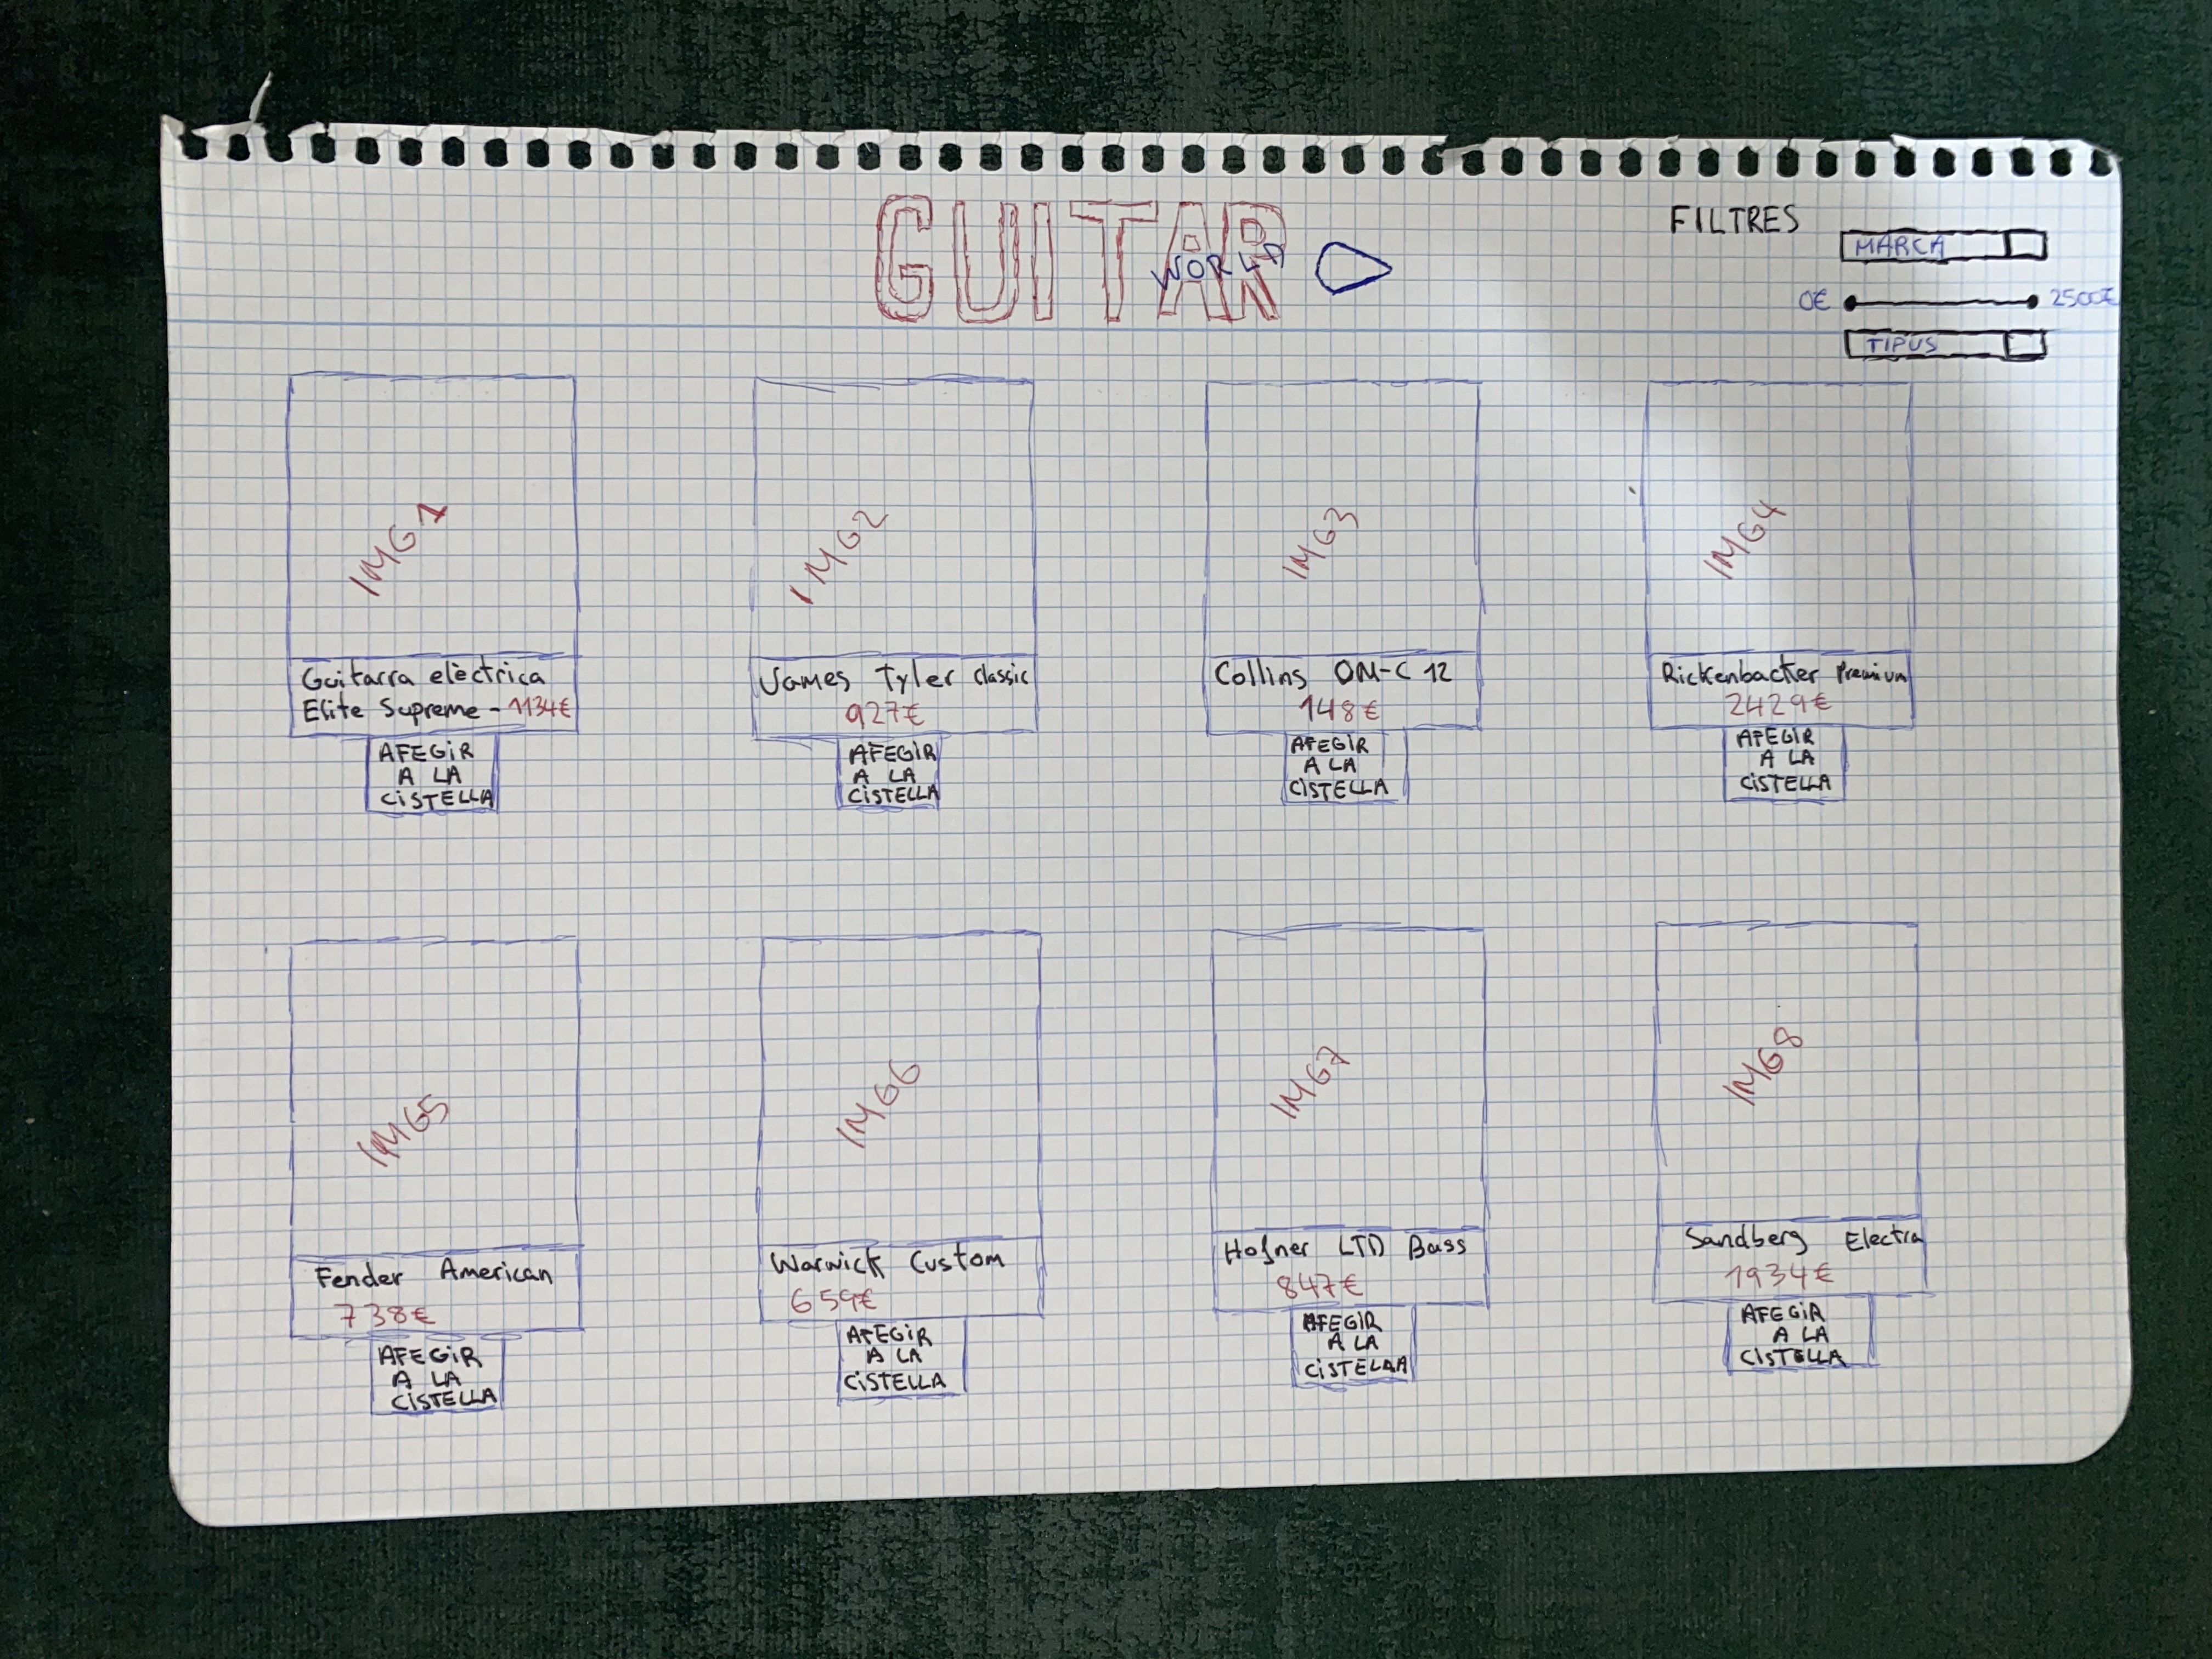 GUITAR
WORLD
FILTRES
MARCA
0€ 2500€
TIPUS
IMG 1
IMG2
IMG3
IMG4
Guitarra elèctrica
Elite Supreme - 1134€
AFEGIR
A LA
CISTELLA
James Tyler Classic
927€
AFEGIR
A LA
CISTELLA
Collins OM-C 12
148€
AFEGIR
A LA
CISTELLA
Rickenbacker Premium
2429€
AFEGIR
A LA
CISTELLA
IMG5
IMG6
IMG7
IMG8
Fender American
738€
AFEGIR
A LA
CISTELLA
Warwick Custom
659€
AFEGIR
A LA
CISTELLA
Hofner LTD Bass
847€
AFEGIR
A LA
CISTELLA
Sandberg Electra
1934€
AFEGIR
A LA
CISTELLA